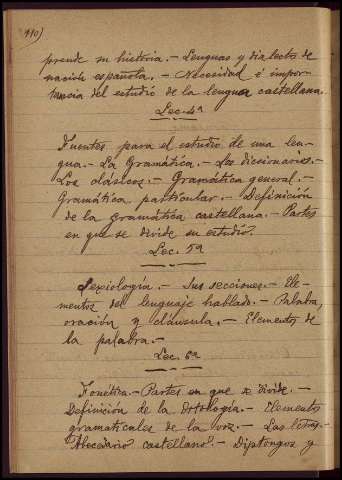 110)
prende su historia.- Lenguas y dialectos de
nación española.- Necesidad é impor-
tancia del estudio de la lengua castellana.
Lec. 4ª
Fuentes para el estudio de una len-
gua.- La Gramática.- Los diccionarios.-
Los clásicos.- Gramática general.-
Gramática particular.- Definición
de la gramática castellana.- Partes
en que se divide su estudio.
Lec. 5ª
Lexiología.- Sus secciones.- Ele-
mentos del lenguaje hablado.- Palabra,
oración y cláusula.- Elementos de
la palabra.-
Lec. 6ª
Fonética.- Partes en que se divide.-
Definición de la Ortología.- Elementos
gramaticales de la voz.- Las letras.-
Abecedario castellano.- Diptongos y